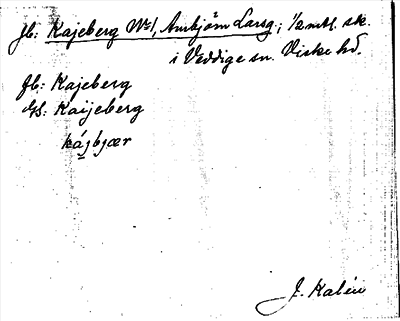 Jb: Kajeberg No 1, Ambjörn Larsg.; 1/2 mtl. sk.
i Veddige sn. Viske hd.
Jb: Kajeberg
Gs: Kaijeberg
kájbjær
J. Kalén